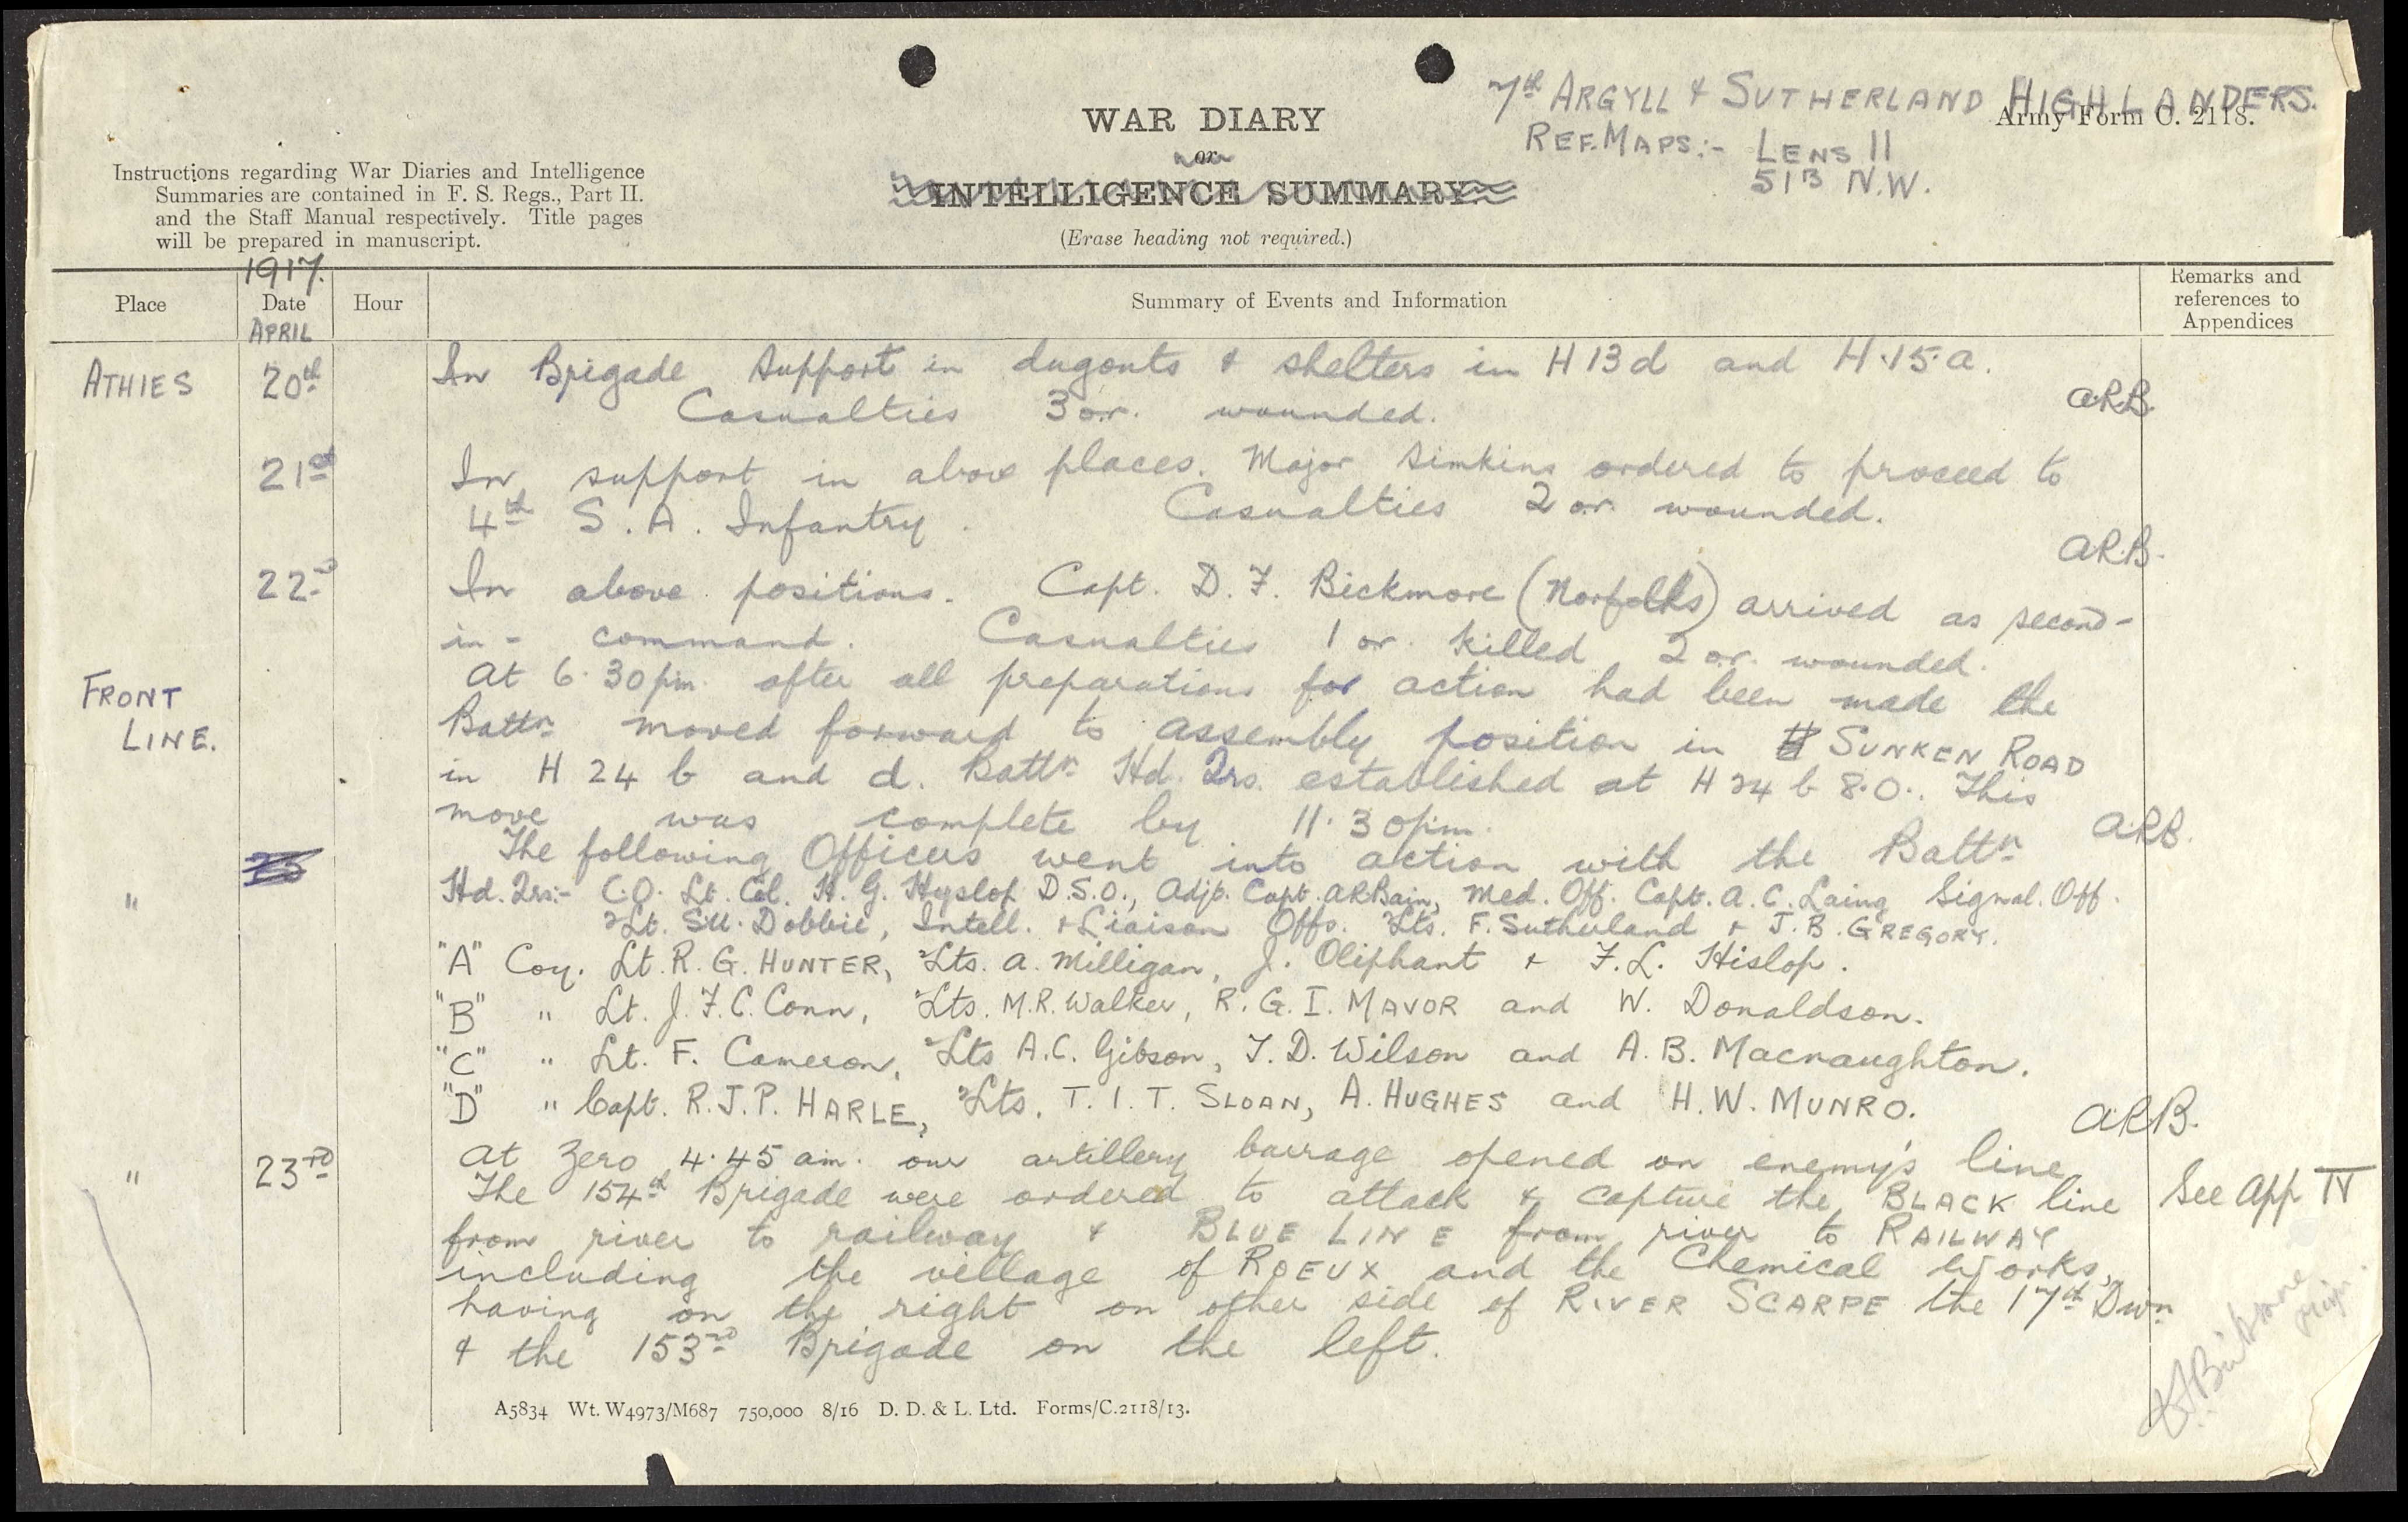 7th ARGYLL & SUTHERLAND HIGHLANDERS.
Army Form C. 2118.
WAR DIARY
or
INTELLIGENCE SUMMARY.
(Erase heading not required.)
REF. MAPS:- LENS 11
51B N.W.
Instructions regarding War Diaries and Intelligence
Summaries are contained in F. S. Regs., Part II.
and the Staff Manual respectively. Title pages
will be prepared in manuscript.
1917.
Place Date Hour Summary of Events and Information Remarks and references to Appendices
APRIL
ATHIES 20th In Brigade support in dugouts & shelters in H 13 d and H.15.a.
Casualties 3 o.r. wounded. A.R.B.
21st In support in above places. Major Simkins ordered to proceed to
4th S. A. Infantry. Casualties 2 o.r. wounded.
A.R.B.
22nd In above positions. Capt. D. F. Bickmore (Norfolks) arrived as second-
in-command. Casualties 1 or. killed 2 o.r. wounded.
FRONT LINE. At 6.30 pm. after all preparations for action had been made the
Battn moved forward to assembly position in SUNKEN ROAD
in H 24 b and d. Battn Hd. Qrs. established at H 24 b 8.0.. This
move was complete by 11.30 pm. A.R.B.
The following Officers went into action with the Battn
" 23 Hd. Qrs:- C.O. Lt. Col. H. G. Hyslop D.S.O., Adjt. Capt. A R Bain, Med. Off. Capt. A. C. Laing Signal. Off.
2Lt. Dobbie, Intell. & Liaison Offs. 2Lts. F. Sutherland & J. B. GREGORY.
"A" Coy. Lt. R. G. HUNTER, 2Lts. A. Milligan, J. Oliphant & F. L. Hislop.
"B" " Lt. J. F. C. Conn, 2Lts. M.R. Walker, R. G. I. MAVOR and W. Donaldson.
"C" " Lt. F. Cameron, 2Lts A.C. Gibson, T. D. Wilson and A. B. Macnaughton.
"D" " Capt. R. J. P. HARLE, 2Lts. T. I. T. SLOAN, A. HUGHES and H. W. MUNRO.
A.R.B.
" 23rd At Zero 4.45 am. our artillery barrage opened on enemy's line
The 154th Brigade were ordered to attack & capture the BLACK line See App IV
from river to railway & BLUE LINE from river to RAILWAY
including the village of ROEUX and the Chemical Works,
having on the right on other side of RIVER SCARPE the 17th Divn
& the 153rd Brigade on the left.
A5834 Wt. W4973/M687 750,000 8/16 D. D. & L. Ltd. Forms/C.2118/13.